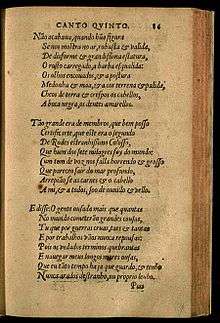 CANTO QVINTO. 86
Não acabaua, quando hũa figura
Se nos mostra no ar, robusta & valida,
De disforme & grandissima estatura,
O rosto carregado, a barba esqualida:
Os olhos encouados, & a postura
Medonha & maa, & a cor terrena & palida,
Cheos de terra & crespos os cabellos,
A boca negra, os dentes amarellos.
Tão grande era de membros, que bem posso
Certificarte, que este era o segundo
De Rodes estranhissimo Colosso,
Que hum dos sete milagres foy do mundo:
Cum tom de voz nos falla horrendo & grosso
Que pareceo sair do mar profundo,
Arrepiãose as carnes & o cabello
A mi, & a todos, soo de ouuilo & velo.
E disse: O gente ousada mais que quantas
No mundo cometerão grandes cousas,
Tu que por guerras cruas, taes & tantas
E por trabalhos vãos nunca repousas:
Pois os vedados terminos quebrantas
E nauegar meus longos mares ousas,
Que eu tãto tempo ha ja que guardo, & tenho
Nunca arados destranho, ou proprio lenho.
Pois